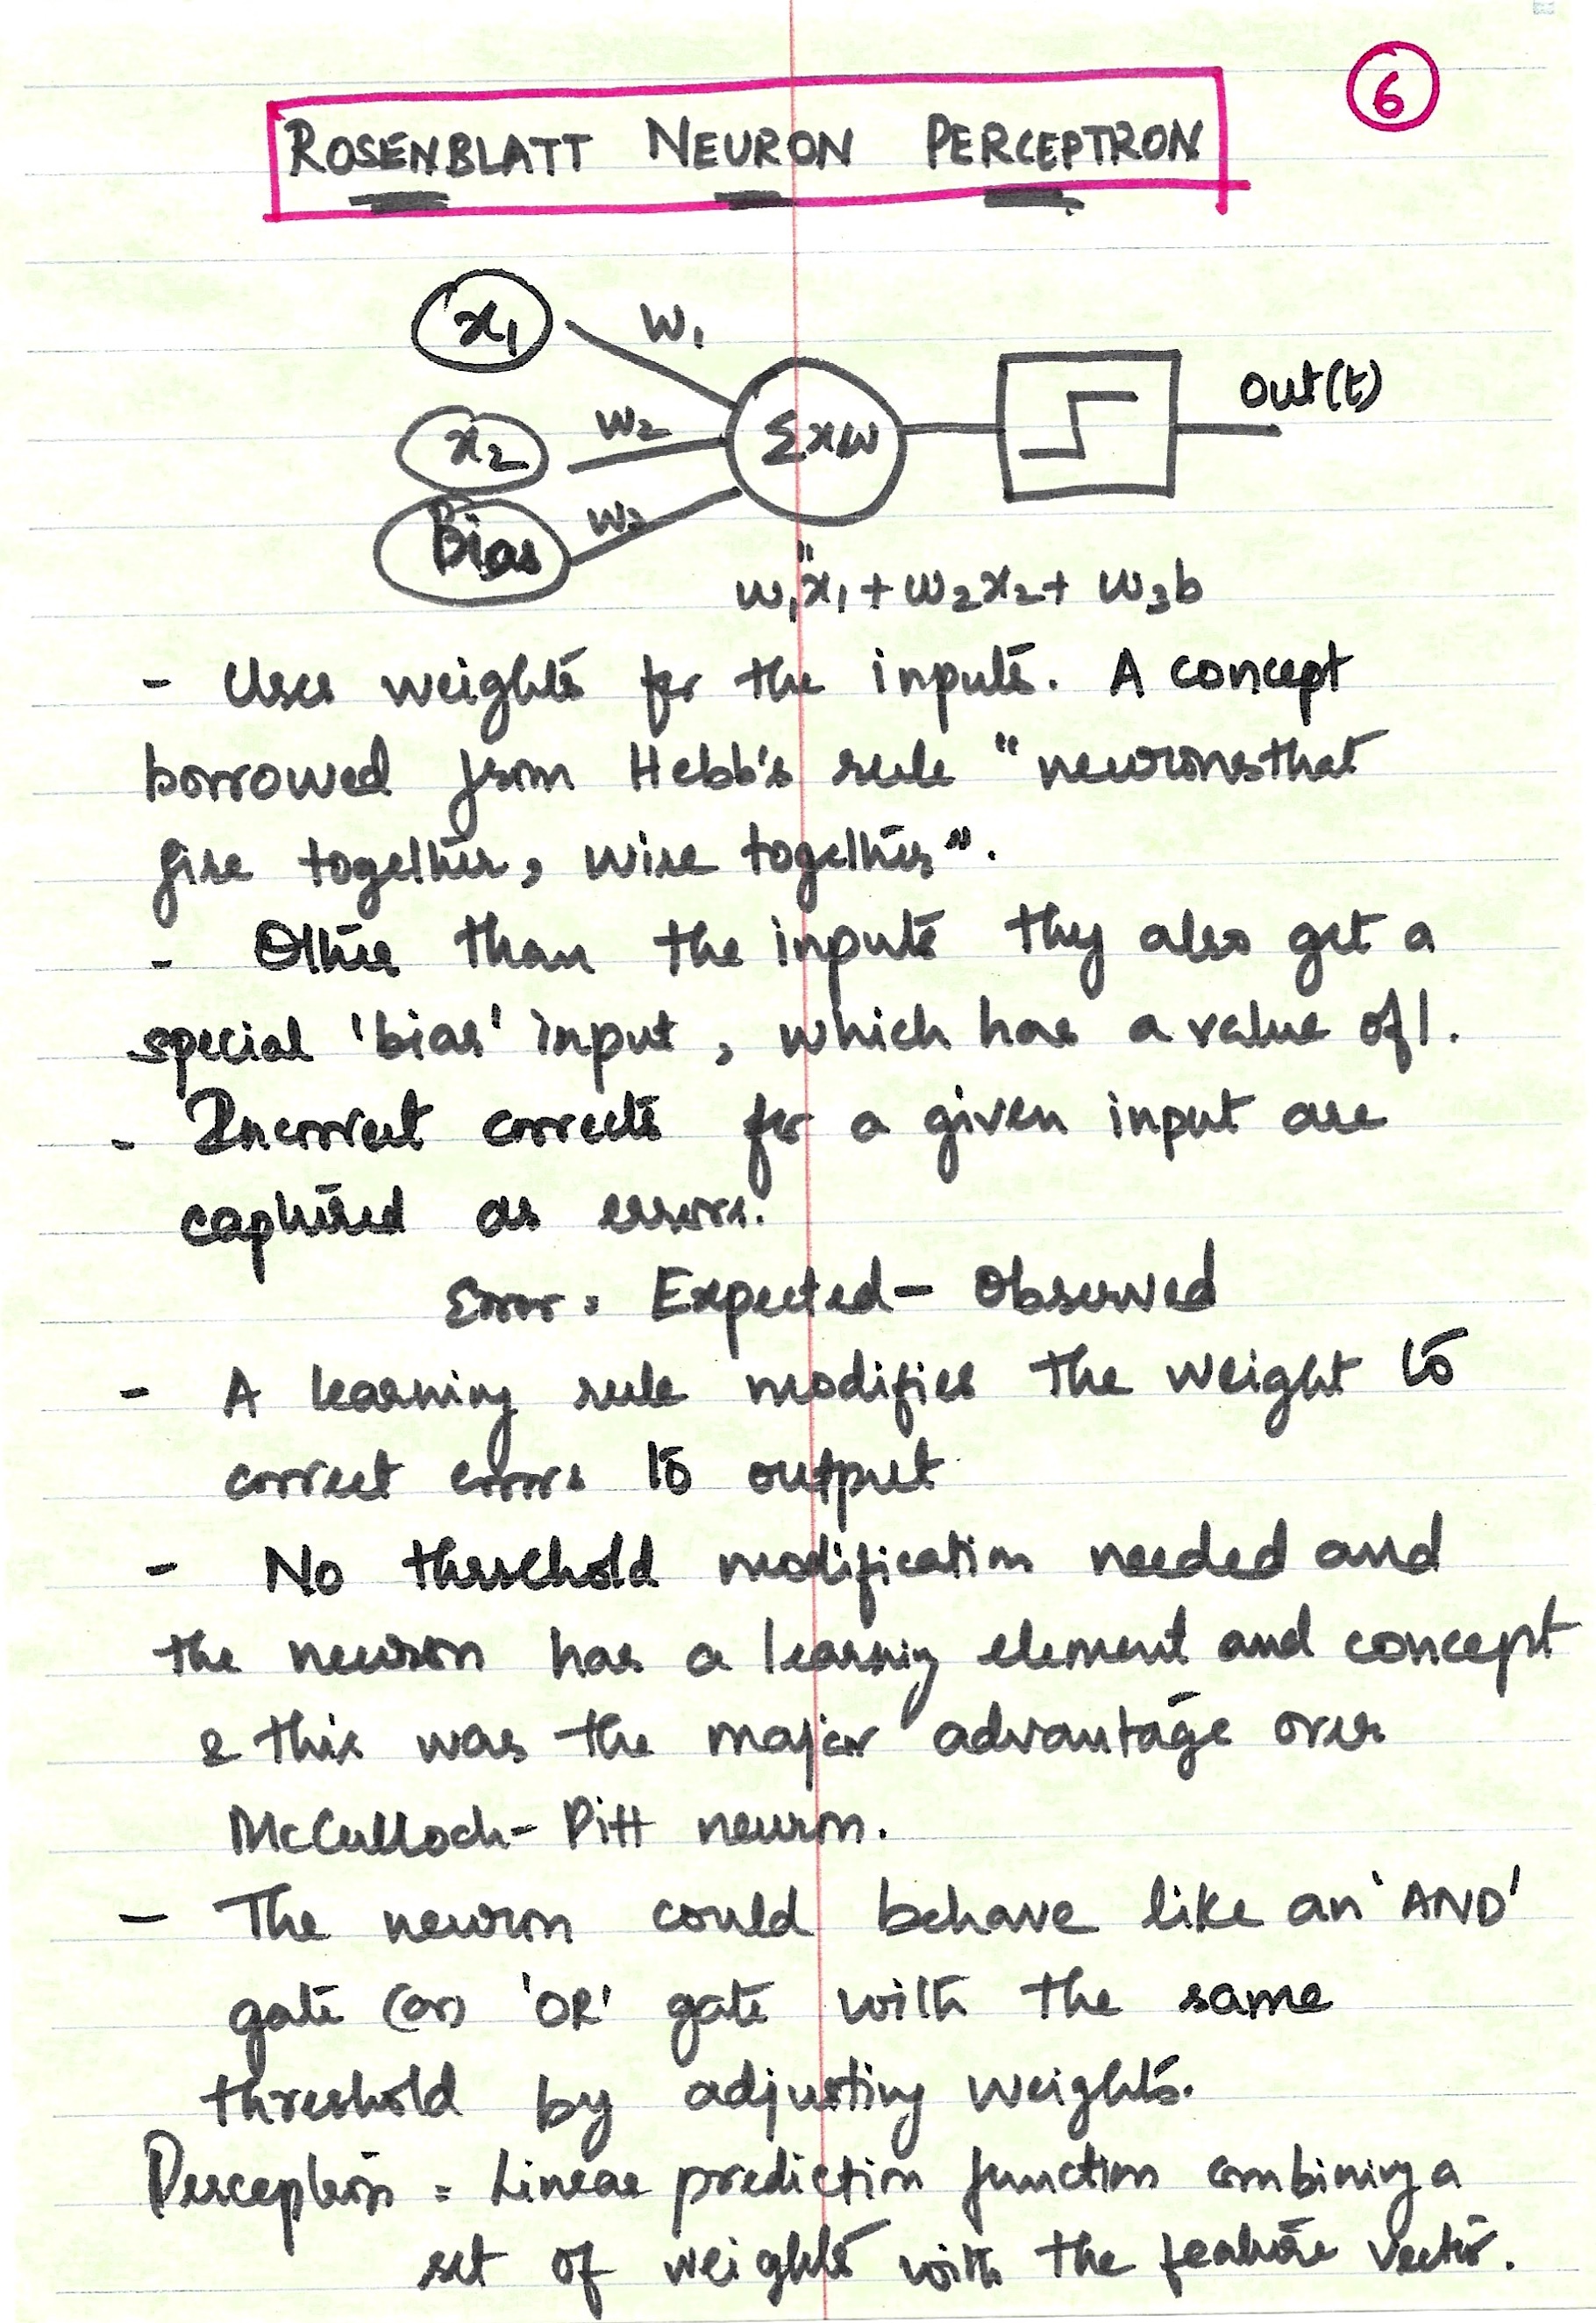 6
ROSENBLATT NEURON PERCEPTRON
x1 w1
out(t)
x2 w2 Σxw
Bias w3
"
w1x1 + w2x2 + w3b
- Uses weights for the inputs. A concept
borrowed from Hebb's rule "neurons that
fire together, wire together".
- Other than the inputs they also get a
special 'bias' input, which has a value of 1.
- Incorrect corrects for a given input are
captured as errors.
Error = Expected - Observed
- A learning rule modifies the weight to
correct errors to output
- No threshold modification needed and
the neuron has a learning element and concept
& this was the major advantage over
McCulloch-Pitt neuron.
- The neuron could behave like an 'AND'
gate (or) 'OR' gate with the same
threshold by adjusting weights.
Perceptron = Linear prediction function combining a
set of weights with the feature vector.